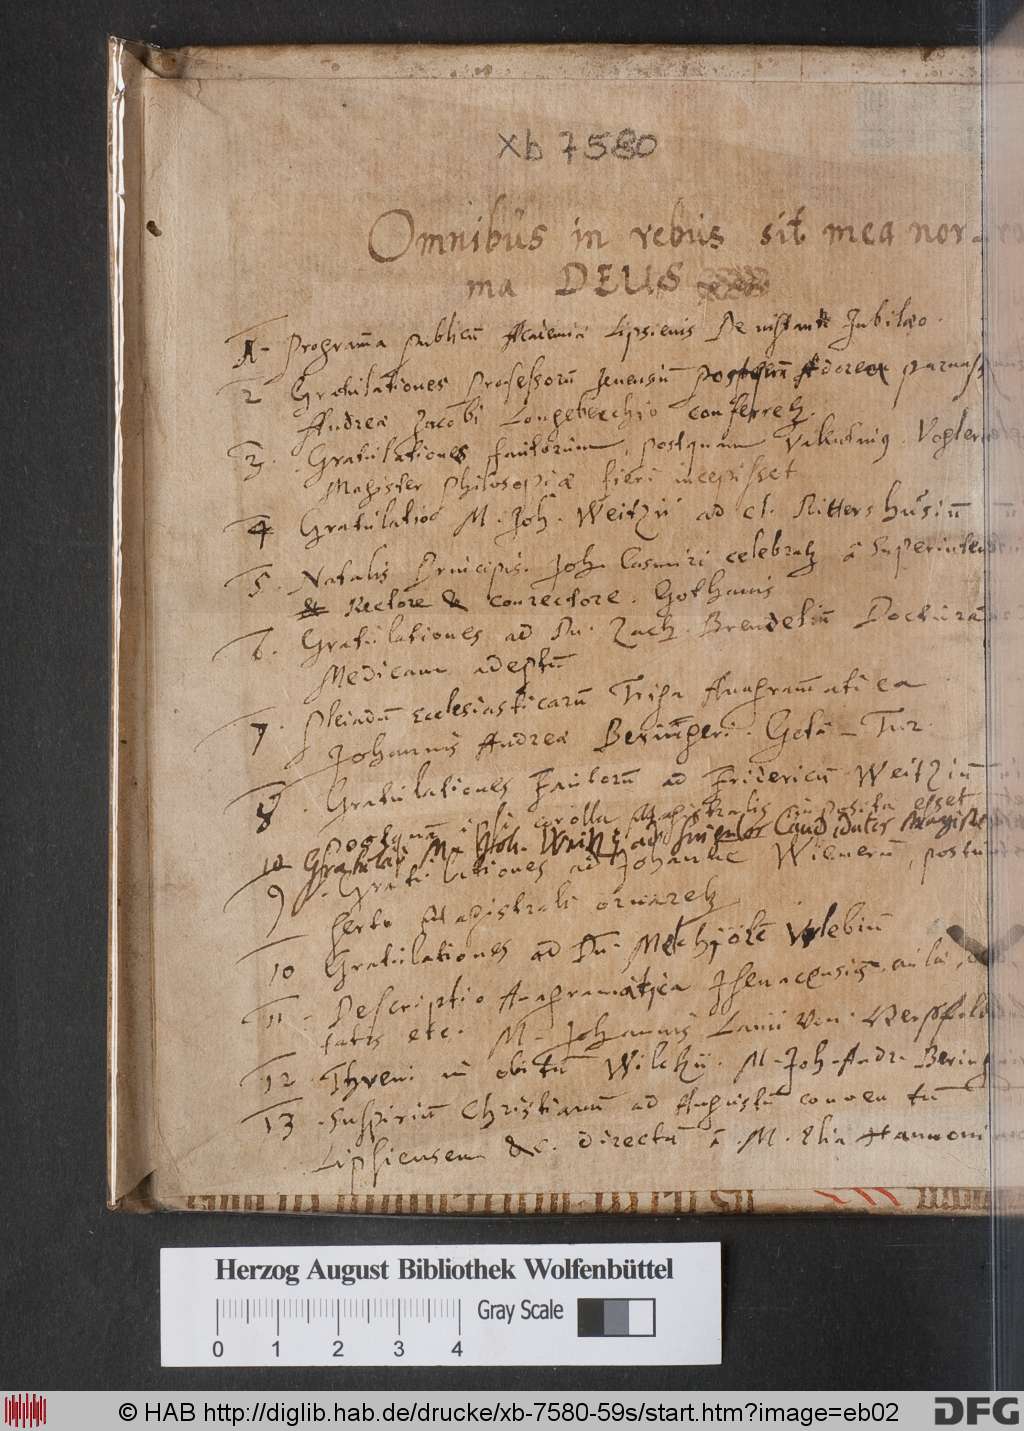 Xb 7580
Omnibus in rebus sit mea nor-
ma DEUS
1- Programa publicu Academiæ Lipsiensis De instante Jubilæo.
2 Gratulationes Professoru Jenensiu
Andreæ Jacobi conferretz
3. Gratulationes fautorum, postquam Valentinus Vogleri
Magister Philosopiæ fieri incepisset
4 Gratulatio M. Joh. Weitzii ad cl. Rittershusiu
5. Natalis Principis. Joh Casmiri celebratz à Superinten
Rectore & conrectore. Gothanis
6. Gratulationes ad Dn. Zach. Brendeliu Docturam
Medicam adeptu
7. Pleiadum Ecclesiasticaru Triga Anagrammatica
Johannis Andreæ Beringeri. Gota-Tur.
8. Gratulationes Fautoru ad Fridericu Weitziu
postqua ipsi corolla Magistralis imposita esset
10 Gratulat M. Joh. Weitz ad Candidatis Magist
9. Gratulationes ad Johanne Wienerum, postu
serto Magistrali ornaretz
10 Gratulationes ad Dn. Melchiore
11 - Descriptio Anagramatica Isenacensis aulæ,
tatis etc. M- Johannis
12. Threni in obitu Wilckii. M-Joh-Andr-Bering
13. Suspiriu Christianu ad Augustu conventu
Lipsiensem &c. directu à M. Elia
Herzog August Bibliothek Wolfenbüttel
Gray Scale
0 1 2 3 4
© HAB http://diglib.hab.de/drucke/xb-7580-59s/start.htm?image=eb02
DFG